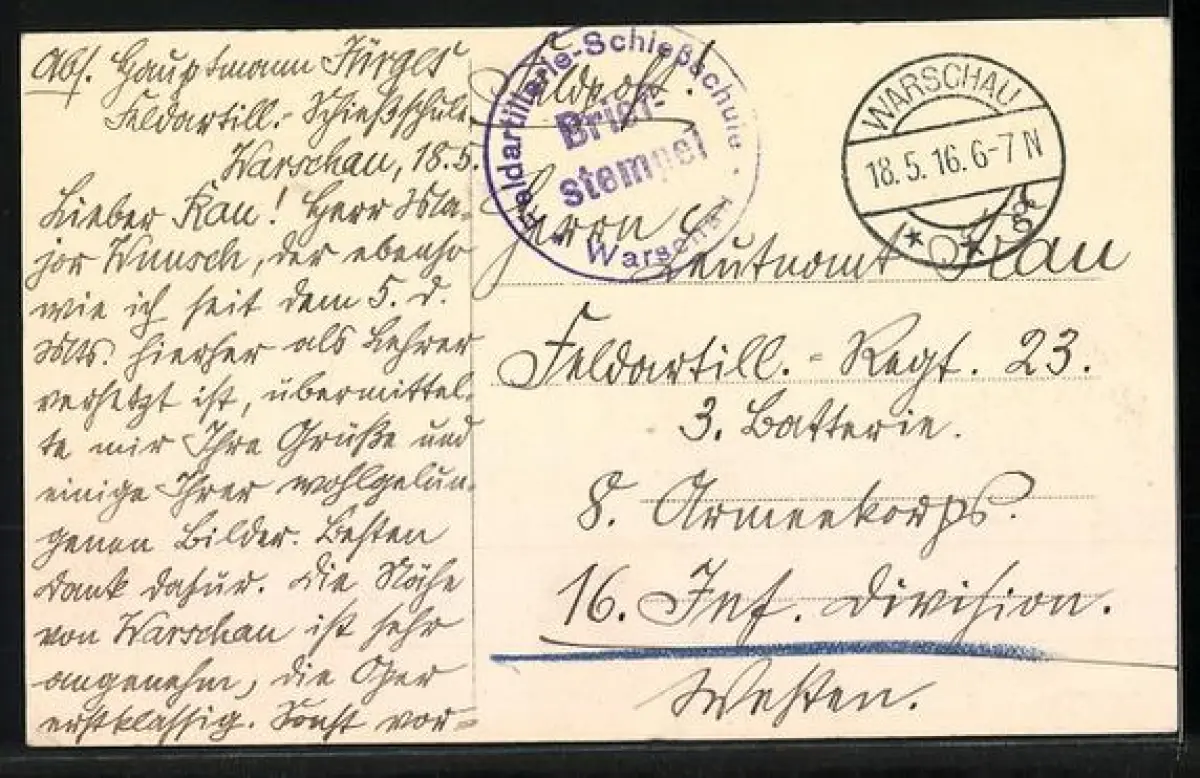 Abs. Hauptmann Jürges
Feldartill.-Schießschule
Warschau, 18.5.
Lieber Rau! Herr Ma-
jor Wunsch, der ebenso
wie ich seit dem 5. d.
Mts. hierher als Lehrer
versetzt ist, übermittel-
te mir Ihre Grüße und
einige Ihrer wohlgelun-
genen Bilder. Besten
Dank dafür. Die Nähe
von Warschau ist sehr
angenehm, die Oper
erstklassig. Sonst vor-
Feldpost!
Feldartillerie-Schießschule
Brief-
stempel
Warschau
WARSCHAU
18.5.16.6-7N
Herrn
Leutnant Rau
Feldartill.-Regt. 23.
3. Batterie.
8. Armeekorps.
16. Inf. Division.
Westen.